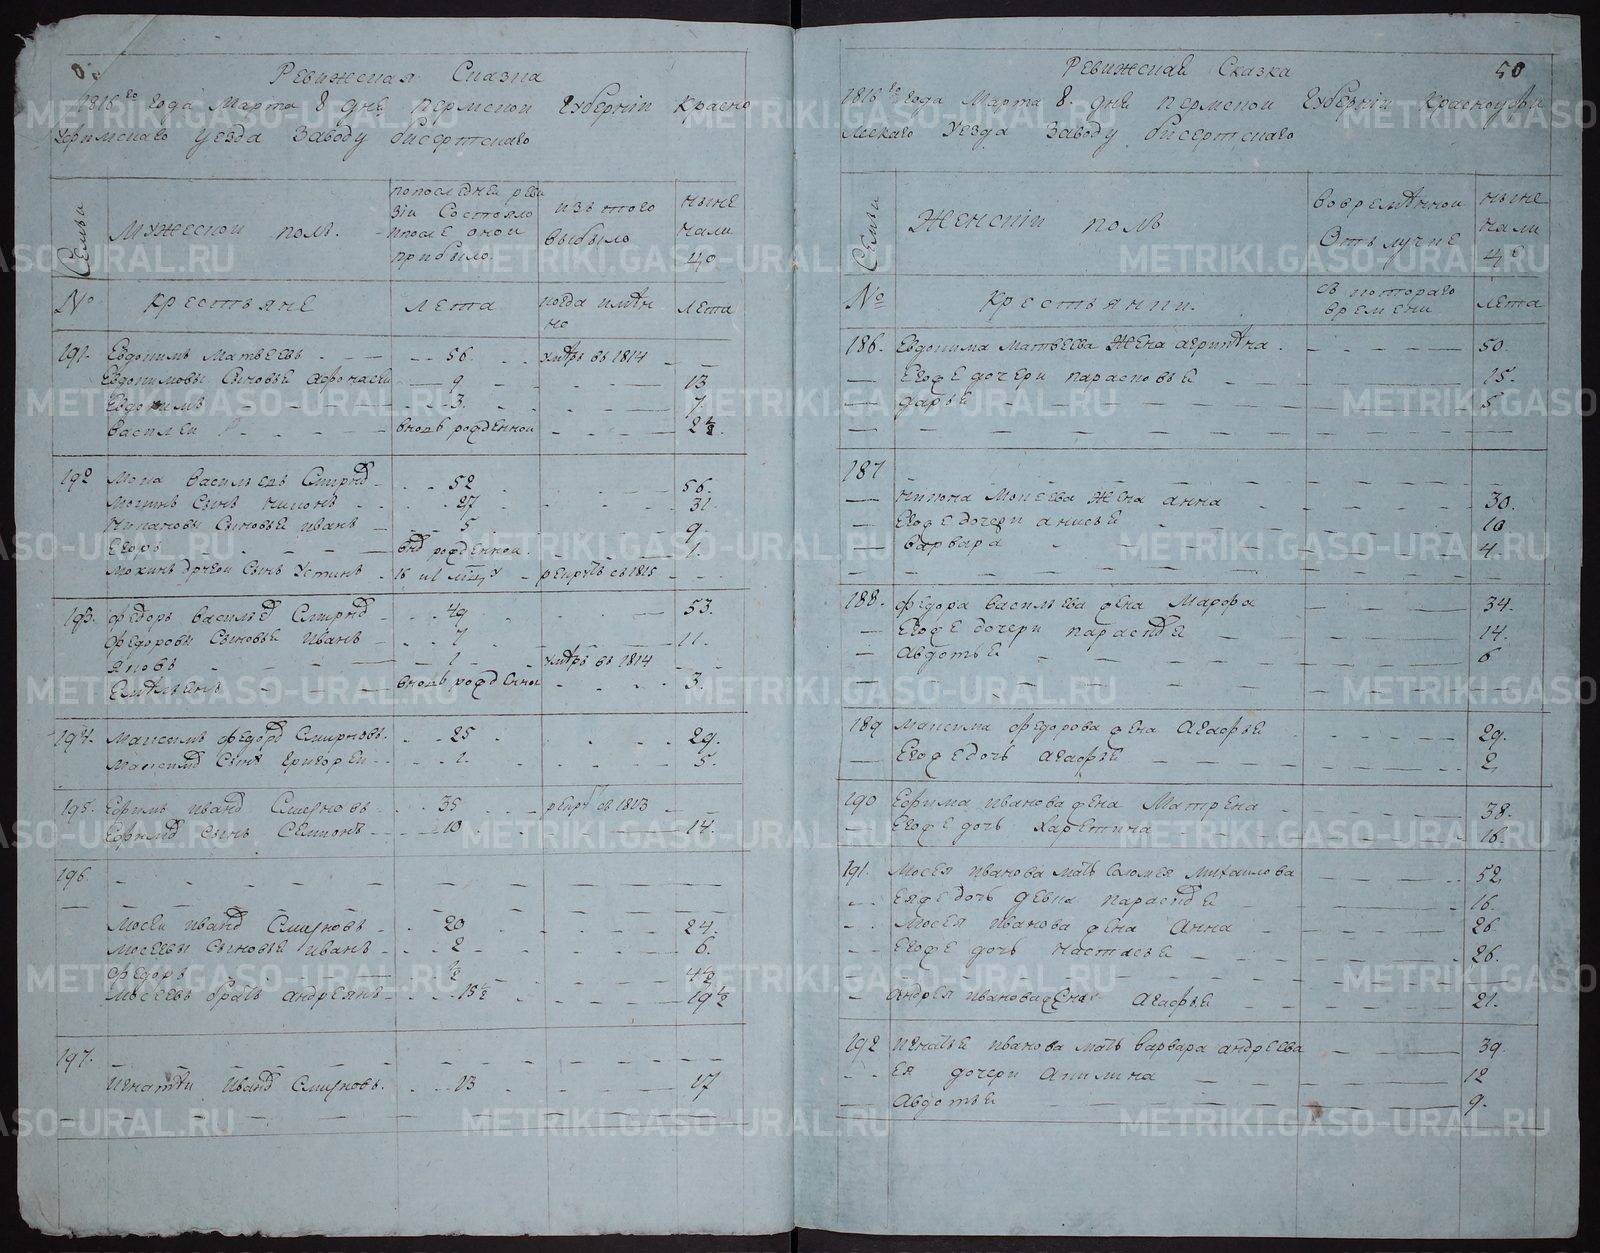 Ревижская Сказка
1816 го года Марта 8 дня пермской Губернiи Красно
уфимскаго уезда Заводу бисертскаго
Семьи
Мужеской полъ.
попоследней реви
зiи Состояло
ипосле оной
прибыло.
изътого
выбыло
ныне
нали
цо
№
крестьяне
лета
когда имян
но
лета
191. Евдокимъ Матвеевъ 56. умъръ въ 1814
Евдокимовы Сыновья Афонасей 9 13
Евдокимъ 3. 7
Василеи вновь рожденной 2 1/2.
192 Мока васильевъ Смирнов 52 56.
Мокинъ Сынъ никонъ 27 31.
Никоновы Сыновья иванъ 5 9.
Егоръ внов рожденной. 1.
Мокинъ другои Сынъ Устинъ 16 рекрутъ въ 1815
193. Федоръ васильев Смирнов 49 53.
Федоровы Сыновья Иванъ 7 11.
Яковъ 1 умъръ въ 1814
Емельянъ вновь рожденной 3.
194. Максимъ Федоров Смирновъ. 25 29.
Максимов Сынъ Григореи 1. 5.
195. Ефимъ иванов Смирновъ 35 рекрутъ въ 1813
Ефимов Сынъ Семионъ 10 14.
196.
Мосеи иванов Смирновъ 20 24.
Мосеевы Сыновья иванъ 2 6.
Федоръ 1/2 4 1/2
Мосеевъ братъ андреянъ 15 1/2 19 1/2
197.
Игнатеи Иванов Смирновъ. 13 17
Ревижская Сказка 50
1816 го года Марта 8. дня пермской Губернiи Красноуфи
мскаго Уезда Заводу бисертскаго
Семьи
Женскiи полъ
вовременной
Отълучке
ныне
нали
це
№
Крестьянки.
съкотораго
времени
лета
186. Евдокима Матвеева Жена агрипена 50.
Егоже дочери парасковья 15.
дарья 5
187
никона Мокеева Жена анна 30.
Егоже дочери анисья 10
варвара 4.
188. Федора васильева жена Марфа 34.
Егоже дочери парасков я 14.
Авдотья 6
189 Максима Федорова жена Агафья 29.
Егоже дочь агафья 2
190 Ефима иванова жена Матрена 38.
Егоже дочь харетина 16.
191. Мосея иванова мать Соломея михаилова 52
Еяже дочь девка парасков я 16.
Мосея иванова жена Анна 26
Егоже дочь настасья 26.
андрея ивановажена Агафья 21.
192 игнатья иванова мать варвара андреева 39.
Ея дочери акилина 12
Авдотья 9.
METRIKI.GASO-URAL.RU